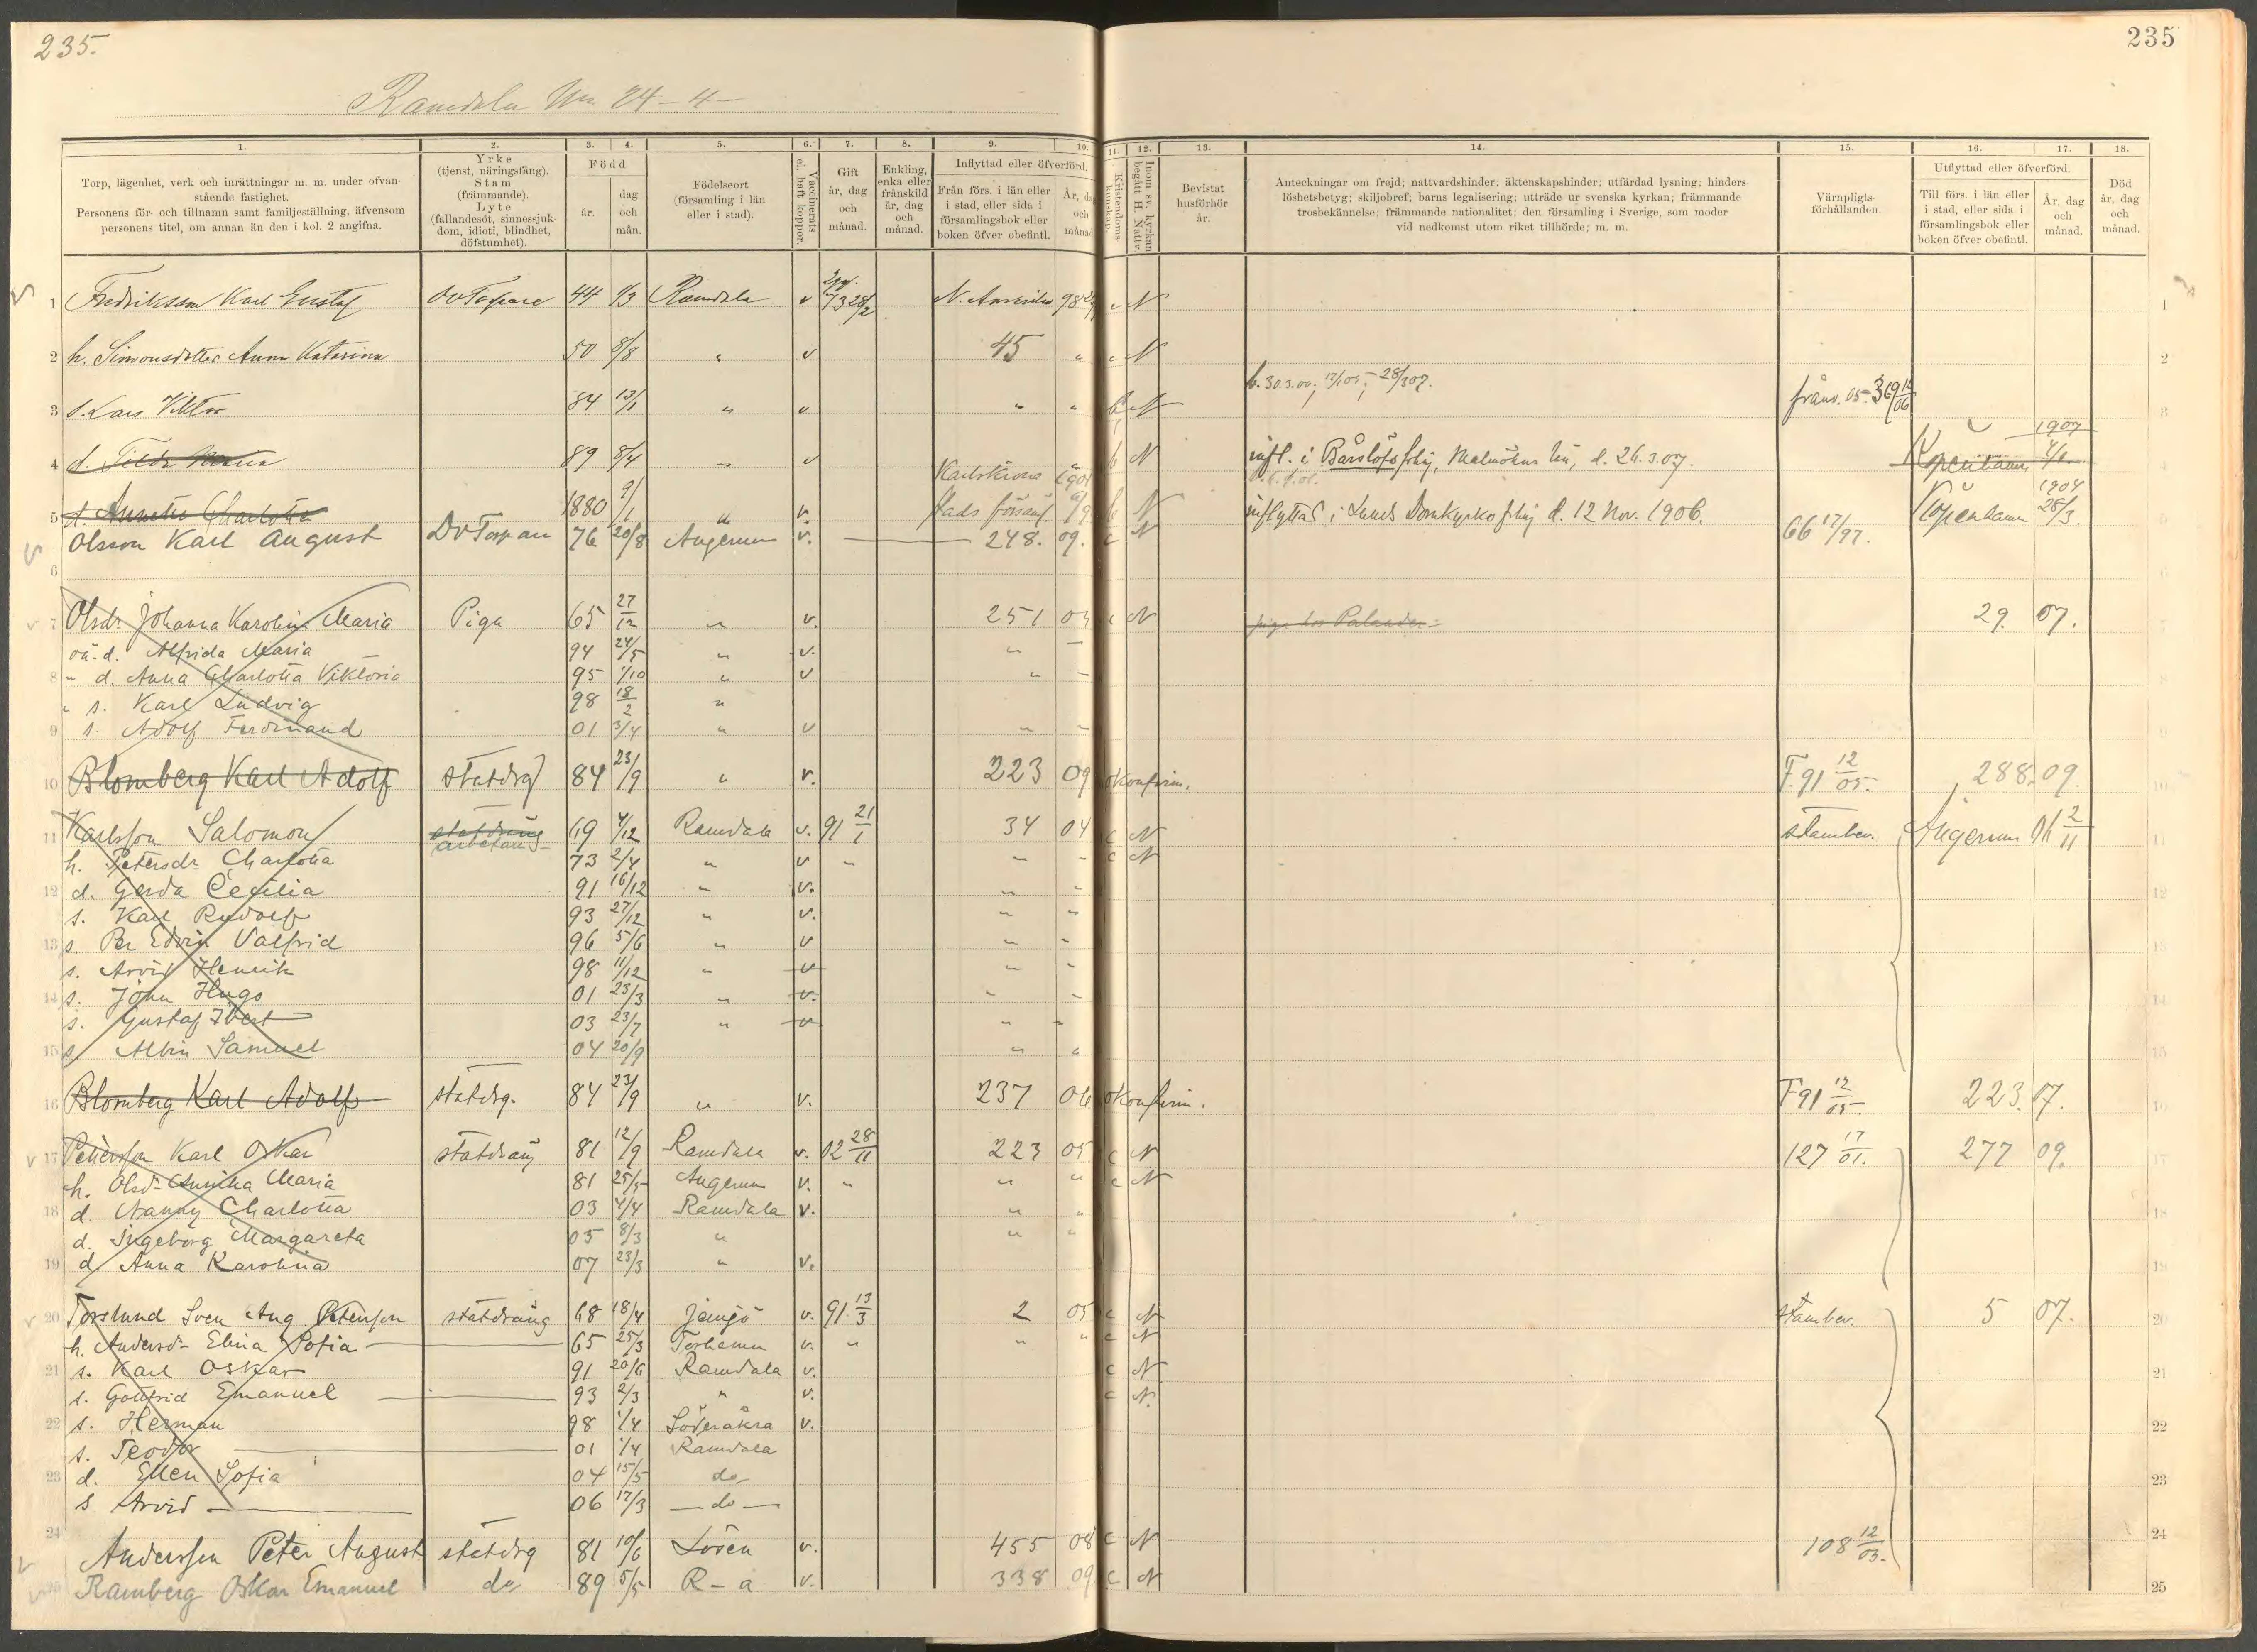 235.
235
Ramdala No 24 - 4 -
1. 2. 3. 4. 5. 6. 7. 8. 9. 10 11. 12. 13. 14. 15. 16. 17. 18.
Torp, lägenhet, verk och inrättningar m. m. under ofvan-
stående fastighet.
Personens för- och tillnamn samt familjeställning, äfvensom
personens titel, om annan än den i kol. 2 angifna.
Yrke
(tjenst, näringsfång).
Stam
(främmande).
Lyte
(fallandesot, sinnessjuk-
dom, idioti, blindhet,
döfstumhet).
Född
år.
dag
och
mån.
Födelseort
(församling i län
eller i stad).
Vaccinerats
el. haft koppor.
Gift
år, dag
och
månad.
Enkling,
enka eller
frånskild
år, dag
och
månad.
Inflyttad eller öfverförd.
Från förs. i län eller
i stad, eller sida i
församlingsbok eller
boken öfver obefintl.
År, dag
och
månad
Kristendoms
kunskap.
Inom sv. kyrkan
begått H. Nattv.
Bevistat
husförhör
år.
Anteckningar om frejd; nattvardshinder; äktenskapshinder; utfärdad lysning; hinders-
löshetsbetyg; skiljobref; barns legalisering; utträde ur svenska kyrkan; främmande
trosbekännelse; främmande nationalitet; den församling i Sverige, som moder
vid nedkomst utom riket tillhörde; m. m.
Värnpligts-
förhållanden.
Utflyttad eller öfverförd.
Till förs. i län eller
i stad, eller sida i
församlingsbok eller
boken öfver obefintl.
År, dag
och
månad.
Död
år, dag
och
månad.
1 Fredriksson Karl Gustaf 44 1/3 Ramdala v 73 28/2 N. Amerika 98 c N 1
2 h. Simonsdotter Anna Katarina 50 8/8 " v 45 " c N 2
3 s. Lars Viktor 84 13/1 " v " " N 3
4 d. Tilda Maria 89 8/4 " v b N infl. i Bårslöfs fhg, Malmöhus län, d. 26.3.07. Köpenhamn 1907 4
5 d. Annette Charlotta 1880 9/1 " v. Karlskrona Stads församl. 1901 b N inflyttad i Lunds Domkyrko fhg d. 12 Nov. 1906. Köpenhamn 1904 28/3. 5
Olsson Karl August 76 20/8 Augerum v. 248. 09. c N 66 17/97.
6 6
7 Olsdr Johanna Karolina Maria Piga 65 27/12 " v. 251 03 c N piga hos Palander 29. 07. 7
oä. d. Alfrida Maria 94 24/5 " v. " -
8 " d. Anna Charlotta Viktoria 95 1/10 " v " - 8
" s. Karl Ludvig 98 18/2 "
9 s. Adolf Ferdinand 01 3/4 " v " - 9
10 Blomberg Karl Adolf statdrg 84 23/9 " v. 223 09 okonfirm. F. 91 12/05. 288. 09. 10
11 Karlsson Salomon statdräng 69 4/12 Ramdala v. 91 21/1 34 04 c N stambev. Augerum 06 2/11 11
h. Petersdr Charlotta 73 2/4 " v - " - c N
12 d. Gerda Cecilia 91 16/12 " v. " " 12
s. Karl Rudolf 93 27/12 " v. " "
13 s. Per Edvin Valfrid 96 5/6 " v " " 13
s. Arvid Henrik 98 11/12 " v " "
14 s. John Hugo 01 23/3 " v. " " 14
s. Gustaf Ivert 03 23/7 " v " "
15 s Albin Samuel 04 20/9 " " 15
16 Blomberg Karl Adolf statdrg. 84 23/9 " v. 237 06 okonfirm. F 91 12/05. 223. 07. 16
17 Petersson Karl Oskar statdräng 81 12/9 Ramdala v. 02 28/11 223 05 c N 127 17/01. 277 09. 17
h. Olsdr Annika Maria 81 25/5 Augerum v. " " " c N
18 d. Nanny Charlotta 03 4/4 Ramdala v. " " 18
d. Ingeborg Margareta 05 8/3 " " "
19 d. Anna Karolina 07 23/3 " v. 19
20 Torslund Sven Aug. Petersson statdräng 68 18/4 Jämjö v. 91 13/3 2 05 c N stambev. 5 07. 20
h. Andersdr Elina Sofia 65 25/3 Torhamn v. " " " c N
21 s. Karl Oskar 91 20/6 Ramdala v. c N 21
s. Gottfrid Emanuel 93 2/3 " v. c N.
22 s. Herman 98 1/4 Söderåkra v. 22
s. Teodor 01 1/4 Ramdala
23 d. Ellen Sofia 04 15/5 do 23
s Arvid 06 17/3 do
24 Andersson Peter August statdrg 81 10/6 Lösen v. 455 08 c N 108 12/03. 24
25 Ramberg Oskar Emanuel do 89 5/5 R-a v. 338 09. c N 25